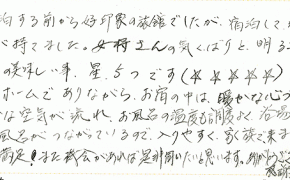 泊する前から好印象の旅館でしたが、宿泊して
持てました。女将さんの気くばりと、明る
の美味しい事、星、5つです(☆☆☆☆☆)
ホームでありながら、お宿の中は、暖かな心づ
な空気が流れ、お風呂の温度も調度よく、浴場
風呂がつながっているので、入りやすく、家族で来ま
満足!また機会があれば是非伺いたいと思います。